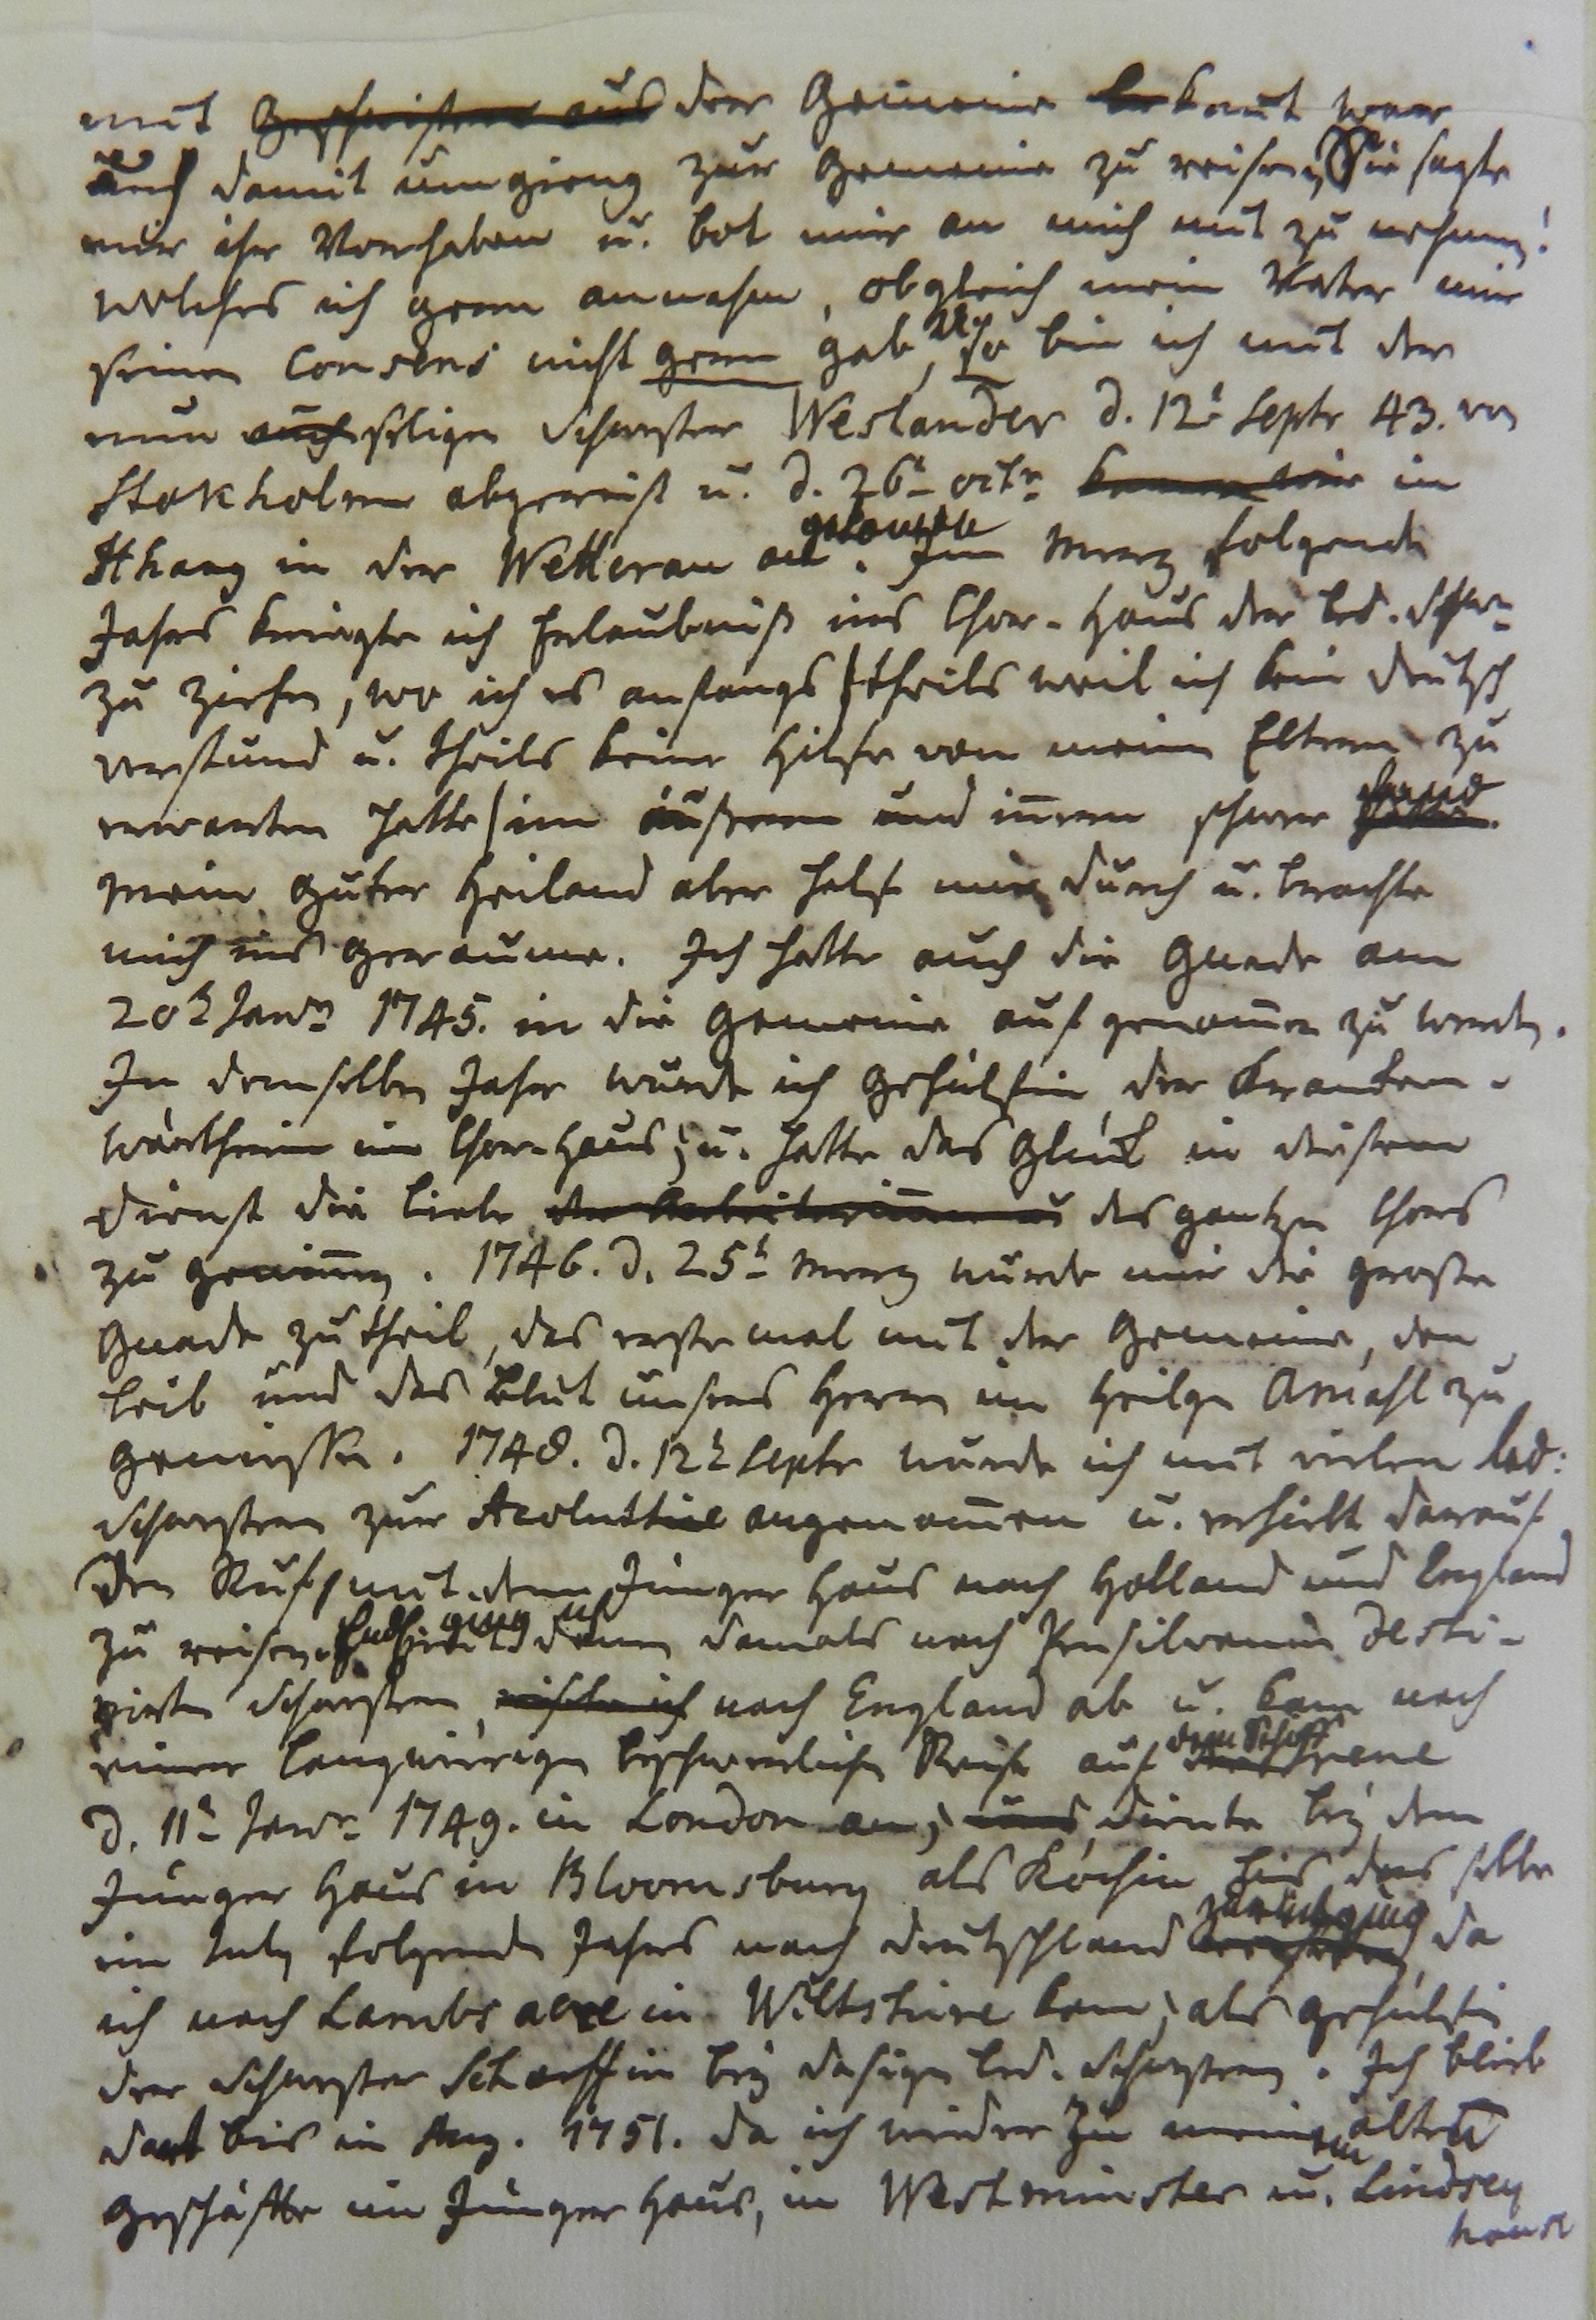 mit Geschwistern aus der Gemeine bekant war
auch damit umgieng zur Gemeine zu reisen, Sie sagte
mir ihr Vorhaben u. bot mir an mich mit zu nehmen!
welches ich gern annahm, obgleich mein Vater mir
seinen Consens nicht gern gab, u. so bin ich mit der
nun auch seligen Schwester Weslander d. 12t Septr 43. von
Stokholm abgereist u. d. 26t octr kamen wir in
Hhaag in der Wetterau an gelangte. Im Merz folgende
Jahres kriegte ich Erlaubniß ins Chor-Haus der led. Schw.
zu ziehen, wo ich es anfangs / theils weil ich kein deutsch
verstund u. theils keine Hilfe von meinen Eltern zu
erwarten hatte / im äußern und iñern schwer hatte fand.
Mein guter Heiland aber half mir durch u. brachte
mich ins geraume. Ich hatte auch die Gnade am
20t Janr 1745. in die Gemeine auf genom̄en zu werden.
In demselben Jahr wurde ich Gehülfin der Kranken-
wärtherin im Chor-Haus; u. hatte das Glück in diesem
Dienst die Liebe der Arbeiterin̄nen u des gantzen Chors
zu gewin̄en. 1746. d. 25t Merz wurde mir die große
Gnade zu theil, das erste mal mit der Gemeine, den
Leib und das Blut unsers Herrn im Heilgen Abmahl zu
genießen. 1748. d. 12t Septr wurde ich mit vielen led:
Schwestern zur Acoluthie angenom̄en u. erhielt darauf
den Ruf, mit dem Jünger Haus nach Holland und England
zu reisen. ging mit denen damals nach Pensilvanien desti-
nirten Schwestern, reiste ich nach England ab u. kam nach
einer langwierigen beschwerlichen Reise auf dem Schiff Irene
d. 11t Janr. 1749. in London an; und diente bey dem
Jünger Haus in Bloomsburg als Köchin bis das selbe
im July folgenden Jahres nach Deutschland zurükging, da
ich nach Lambs acre in Wiltshire kam, als Gehülfin
der Schwester Scharffin bey dasigen led. Schwestern. Ich blieb
dort bis im Aug. 1751. da ich wieder zu meinem alten
Geschäfte im Jünger Haus, in Westminster u. in Lindsey
house